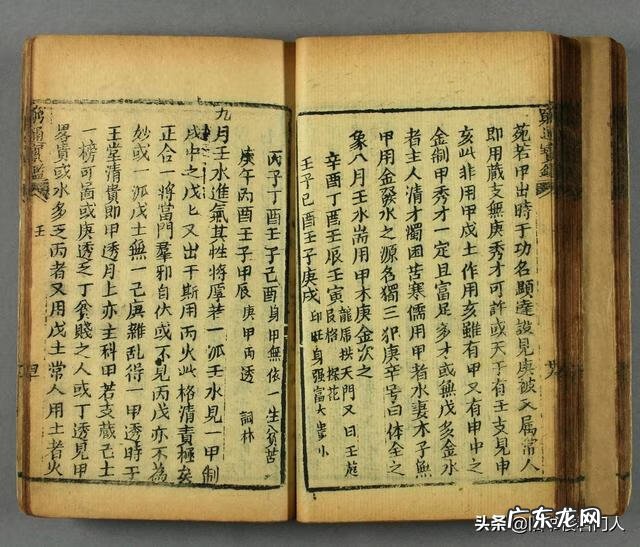 苑若甲出時于功名顯達設見庚破又属常人
即用蔵支無庚秀才可許或天于有壬支見申
亥此非用甲戊土作用亥雖有甲又有申中之
金制甲秀才一定且富足多才或無戊多金水
者主人清才獨困苦寒儒用甲者水妻木子無
甲用金發水之源名獨三犯庚辛号曰体全之
象八月壬水耑用甲木庚金次之
辛酉丁酉壬辰壬寅 龍虎拱天門又曰壬趍艮格 探花
壬子己酉壬子庚戌 印旺身強富大壽小
丙子丁酉壬子己酉 身甲無依一生貧苦
庚午丙酉壬子甲辰 庚甲丙透 詞林
九月壬水進氣其性将厚若一派壬水見一甲制
戌中之戊匕又出干斯用丙火此格清貴極矣
正合一將當門羣邪自伏或不見丙戊亦不為
妙或一派戊土無一己庚雜乱得一甲透時于
玉堂清貴即甲透月上亦主科甲若支蔵己土
一榜可啚或庚透乏丁貧賤之人或丁透見甲
畧貴或水多乏丙者又用戊土常人用土者火
窮通寶鑑
壬
头条
广东龙网